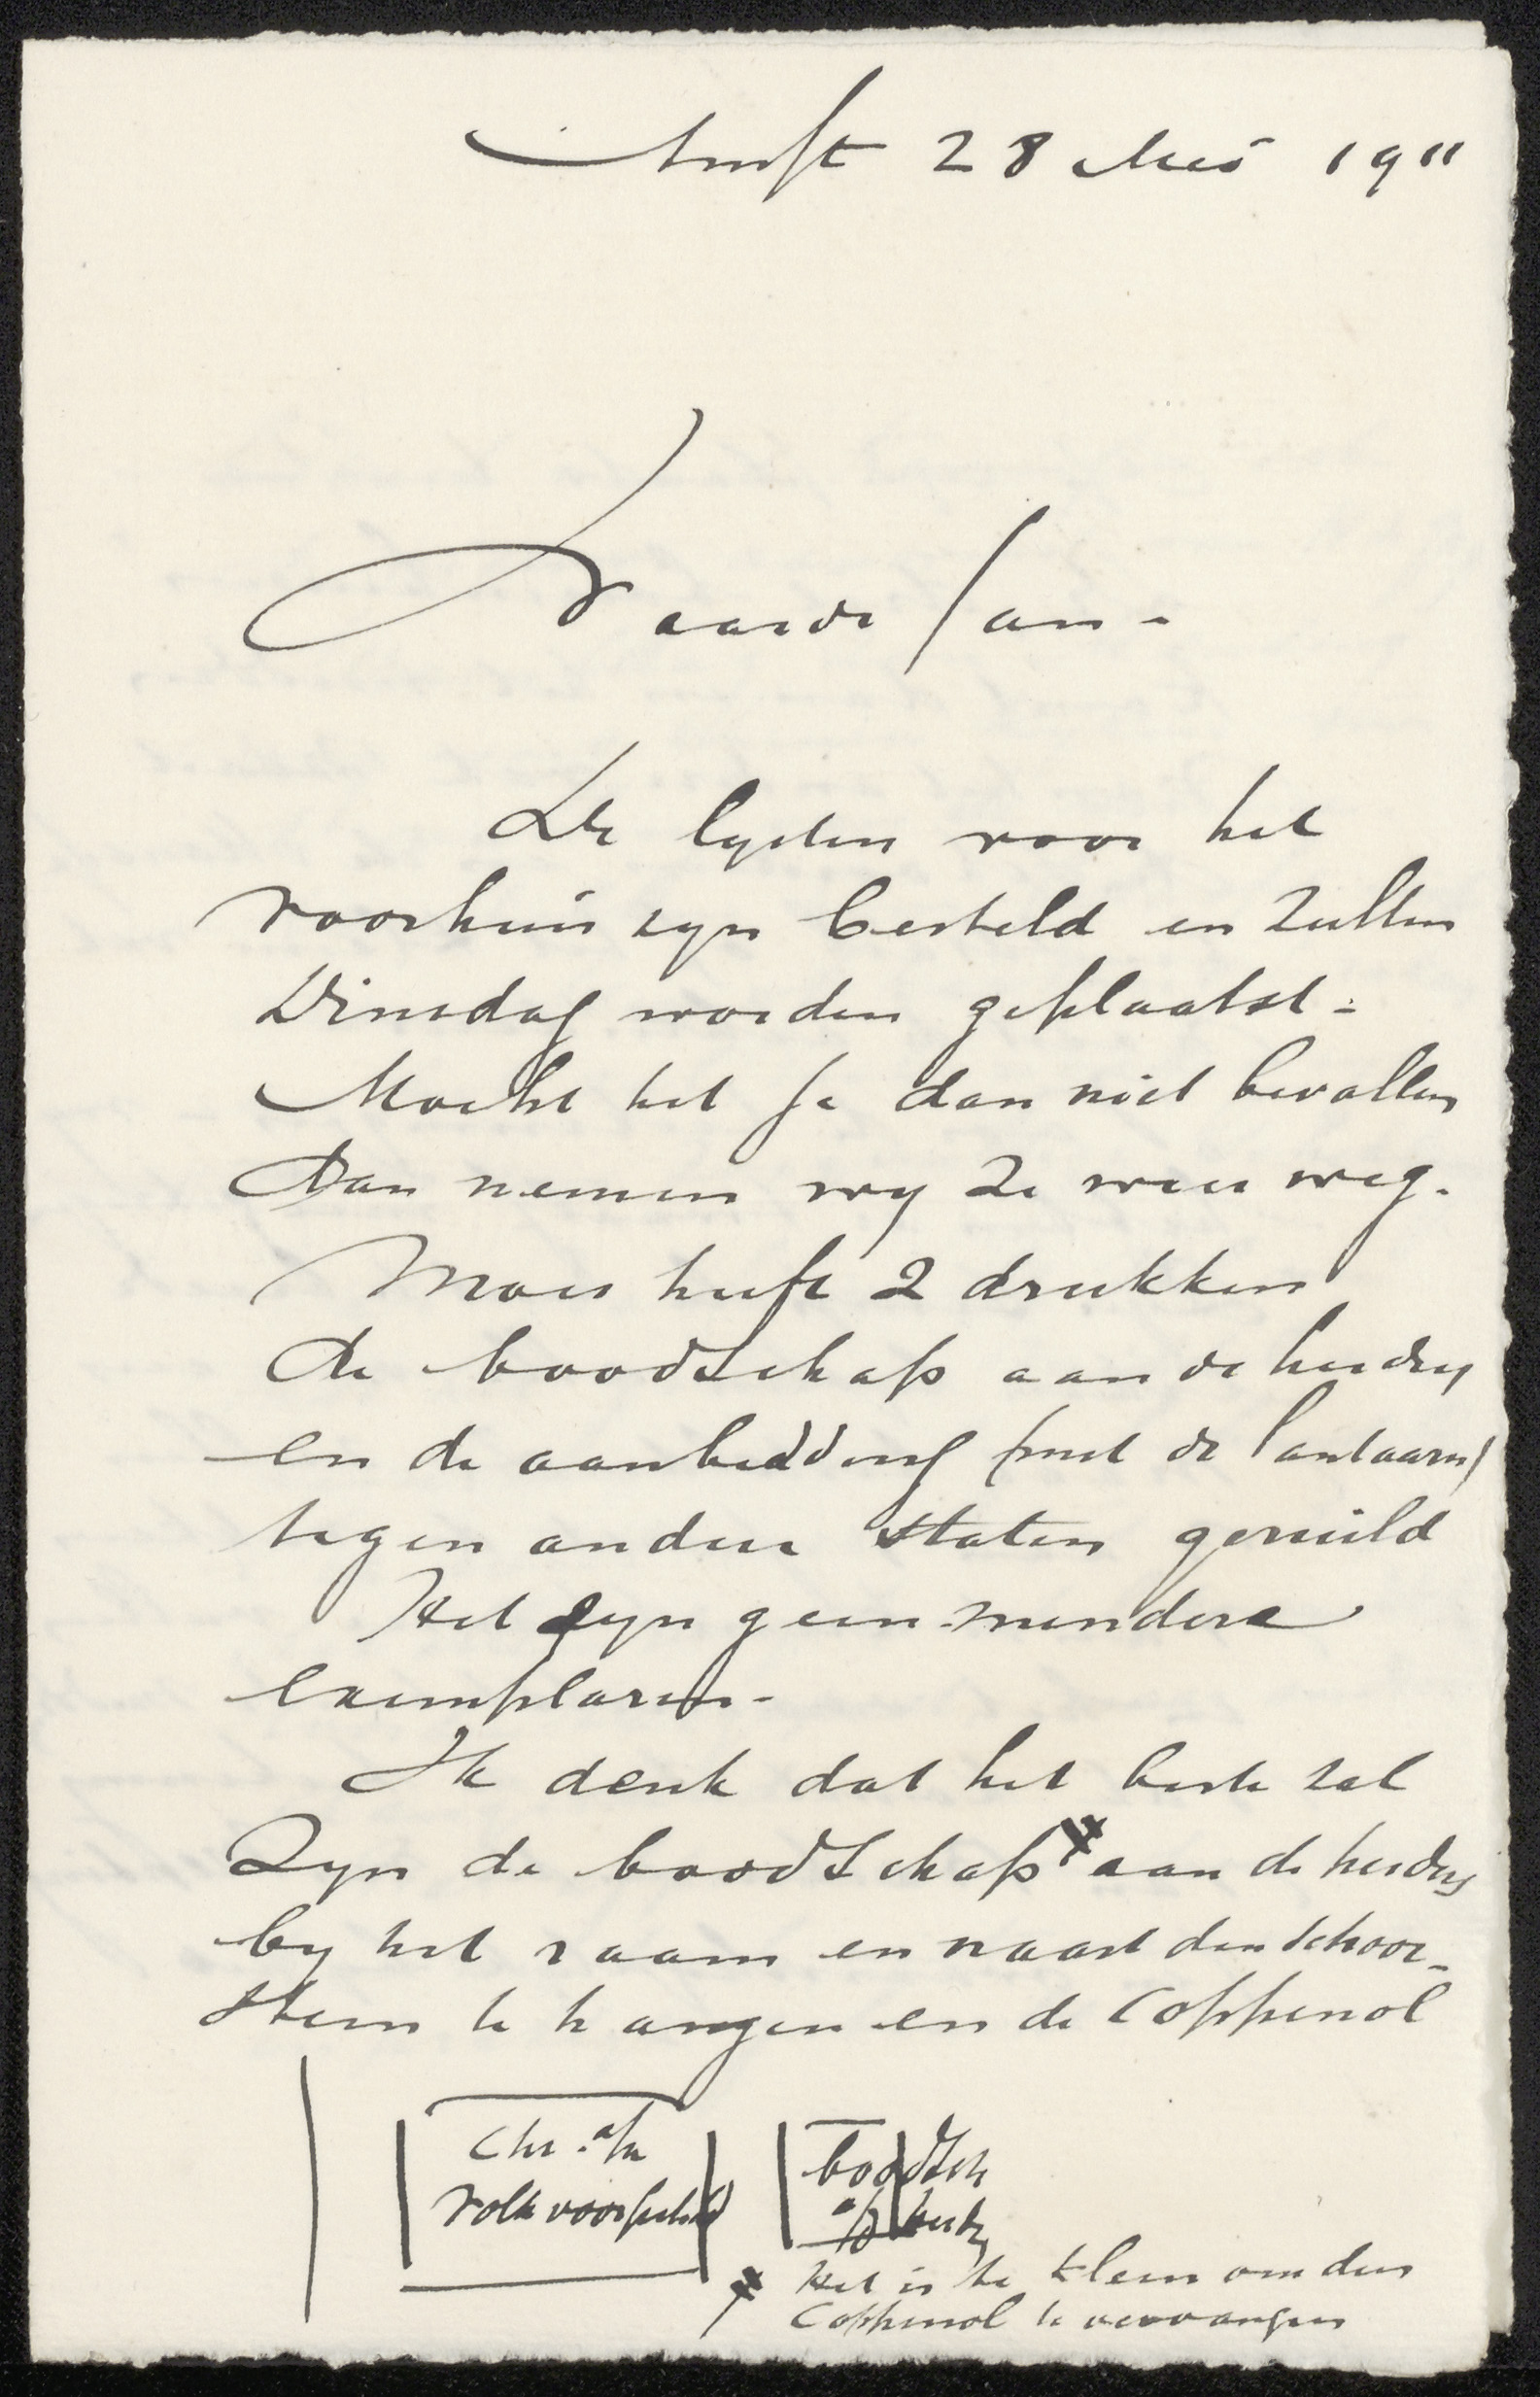 Amst 28 Mei 1911
Waarde Jan -
De lysten voor het
voorhuis zyn besteld en zullen
Dinsdag worden geplaatst -
Mocht het je dan niet bevallen
Dan nemen wy ze weer weg.
Moes heeft 2 drukken
De boodschap aan de herders
en de aanbidding (met de lantaarn)
tegen andere staten geruild
Het zyn geen mindere
exemplaren -
Ik denk dat het beste zal
Zyn de boodschap aan de herders
by het raam en naast den schoor-
steen te hangen en de Coppenol
Chr. a/h
Volk voorgesteld
boodsch
a/d herders
Het is te klein om den
Coppenol te vervangen